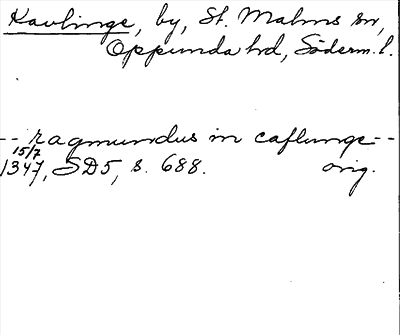 Kavlinge, by, St. Malms sn,
Oppunda hd, Söderm. l.
-- ragmundus in caflunge --
15/7
1347, SD5, s. 688. orig.